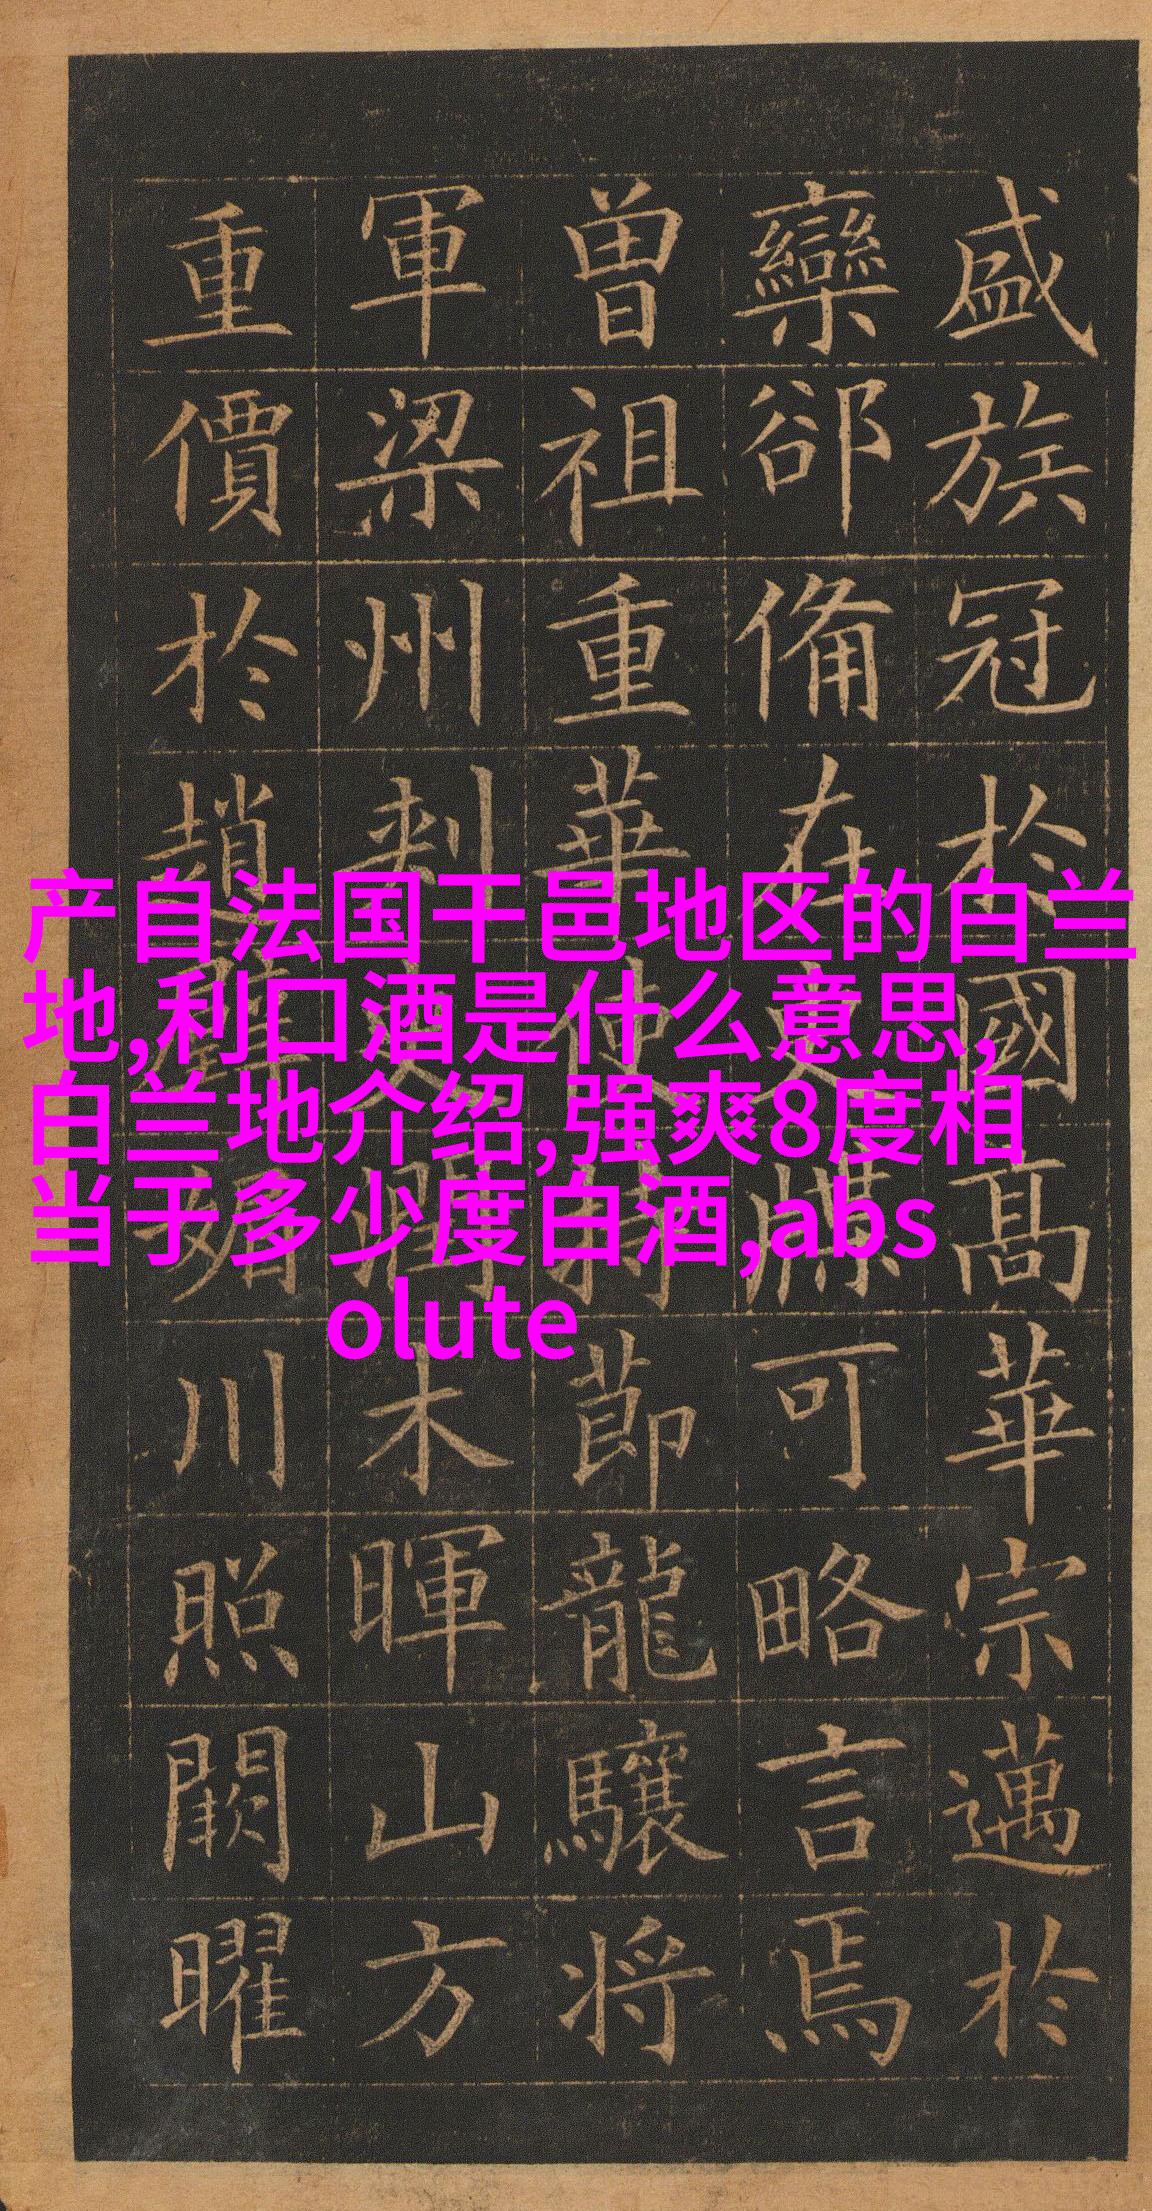 盛族冠於國髙華宗邁於
欒郤備在史牒可略言焉
曽祖重華使持節龍驤将
軍梁州刺史潤木暉山方
重價於趙璧媚川照闕曜
产自法国干邑地区的白兰
地,利口酒是什么意思,
白兰地介绍,强爽8度相
当于多少度白酒,abs
olute